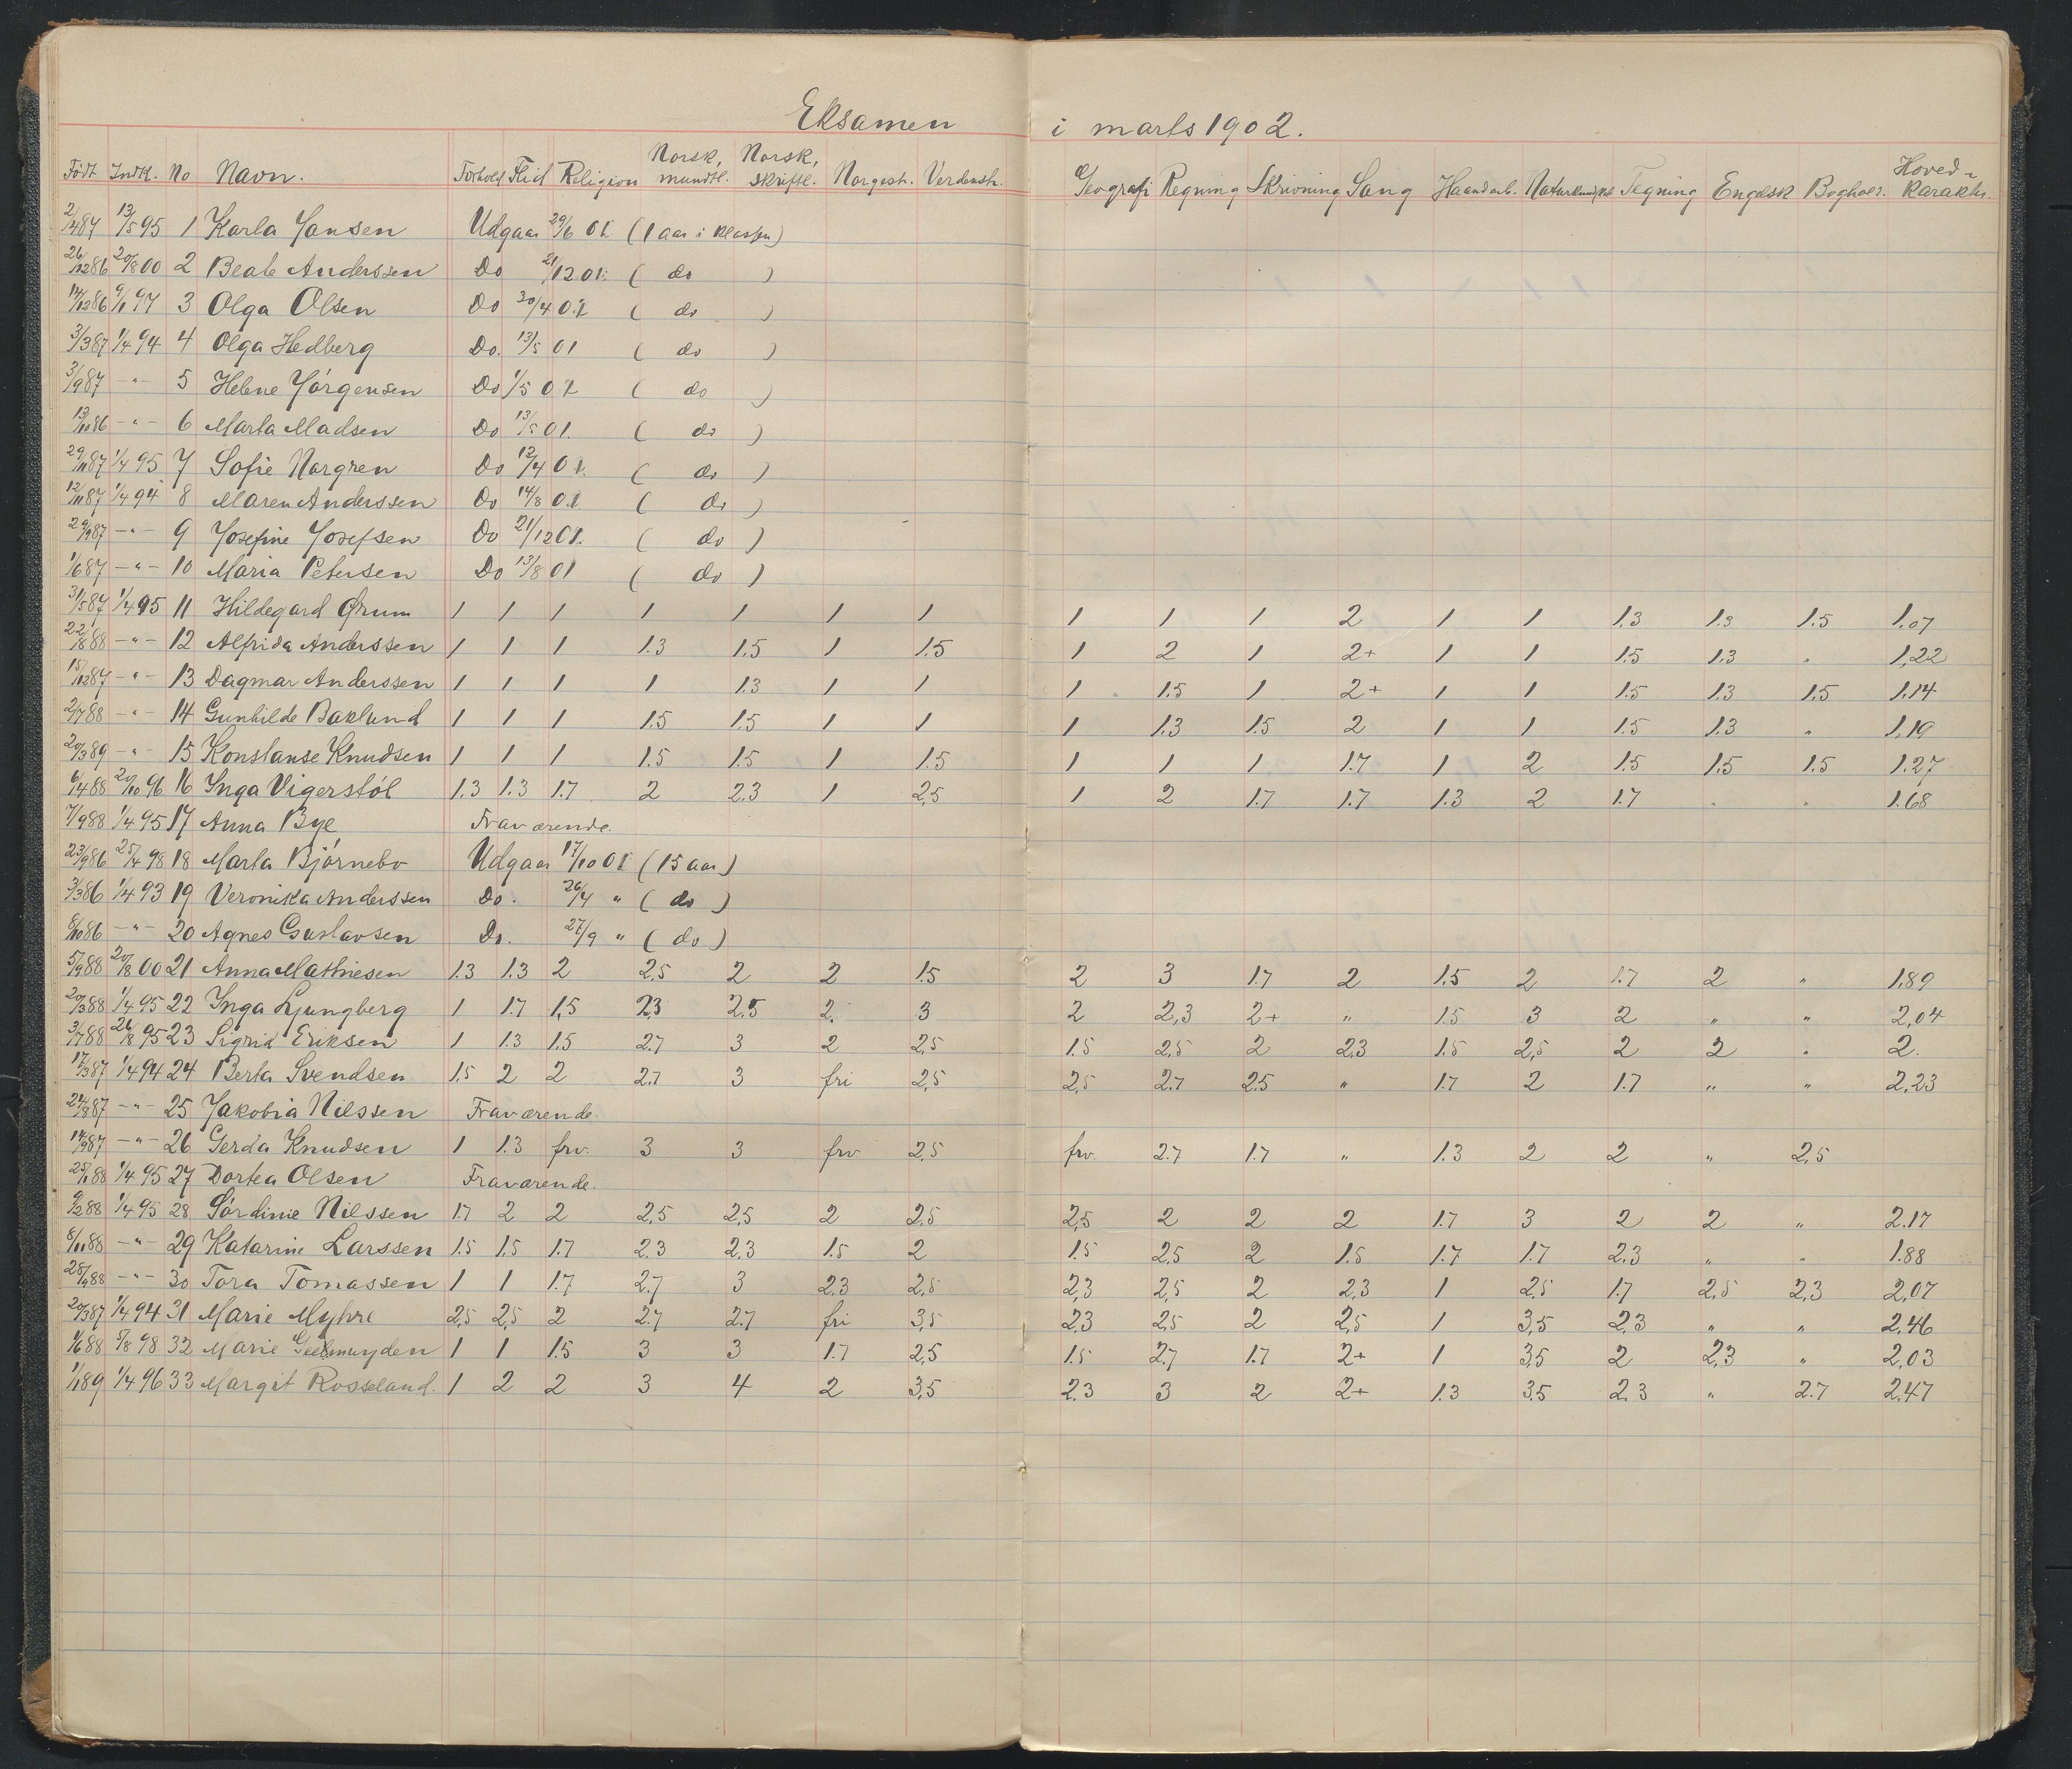 Eksamen i marts 1902.
Født Indk. No Navn. Forhold Flid Religion Norsk, mundtl. Norsk, skriftl. Norgesh. Verdensh. Geografi Regning Skrivning Sang Haandarb. Naturkundskab Tegning Engelsk Boghol. Hoved-karakter.
2/4 87 13/5 95 1 Karla Jansen Udgaar 29/6 01 (1 aar i klassen)
26/12 86 20/8 00 2 Beate Anderssen Do 21/12 01. ( do )
14/12 86 9/1 97 3 Olga Olsen Do 30/4 01 ( do )
3/3 87 1/4 94 4 Olga Hedberg Do. 13/5 01 ( do )
3/9 87 -"- 5 Helene Jørgensen Do 1/5 01 ( do )
13/10 86 -"- 6 Marta Madsen Do 13/5 01. ( do )
29/11 87 1/4 95 7 Sofie Norgren Do 12/4 01. ( do )
12/11 87 1/4 94 8 Maren Anderssen Do 14/8 01. ( do )
29/9 87 -"- 9 Josefine Josefsen Do 21/12 01. ( do )
1/6 87 -"- 10 Maria Petersen Do 13/8 01 ( do )
31/5 87 1/4 95 11 Hildegard Ørum 1 1 1 1 1 1 1 1 1 1 2 1 1 1.3 1.3 1.5 1.07
22/8 88 -"- 12 Alfrida Anderssen 1 1 1 1.3 1.5 1 1.5 1 2 1 2+ 1 1 1.5 1.3 " 1,22
15/12 87 -"- 13 Dagmar Anderssen 1 1 1 1 1.3 1 1 1 1.5 1 2+ 1 1 1.5 1.3 1.5 1.14
2/7 88 -"- 14 Gunhilde Baklund 1 1 1 1.5 1.5 1 1 1 1.3 1.5 2 1 1 1.5 1.3 " 1,19
20/3 89 -"- 15 Konstanse Knudsen 1 1 1 1.5 1.5 1 1.5 1 1 1 1.7 1 2 1.5 1.5 1.5 1.27
6/4 88 20/10 96 16 Inga Vigerstøl 1.3 1.3 1.7 2 2.3 1 2,5 1 2 1.7 1.7 1.3 2 1.7 " " 1.68
7/9 88 1/4 95 17 Anna Bye Fraværende.
23/9 86 25/4 98 18 Marta Bjørnebo Udgaar 17/10 01 (15 aar)
3/3 86 1/4 93 19 Veronika Anderssen Do. 26/4 " ( do )
8/10 86 -"- 20 Agnes Gustavsen Do. 27/9 " ( do )
5/9 88 20/8 00 21 Anna Mathiesen 1.3 1.3 2 2.5 2 2 1.5 2 3 1.7 2 1,5 2 1.7 2 " 1,89
20/3 88 1/4 95 22 Inga Ljungberg 1 1.7 1,5 2,3 2.5 2. 3 2 2,3 2+ " 1.5 3 2 " " 2,04
3/7 88 26/8 95 23 Sigrid Eriksen 1 1.3 1.5 2.7 3 2 2,5 1.5 2,5 2 2,3 1.5 2,5 2 2 " 2.
17/3 87 1/4 94 24 Berta Svendsen 1.5 2 2 2.7 3 fri 2,5 2,5 2.7 2.5 " 1.7 2 1.7 " " 2,23
24/8 87 -"- 25 Jakobia Nilssen Fraværende.
14/9 87 -"- 26 Gerda Knudsen 1 1.3 frv. 3 3 frv 2,5 frv. 2.7 1.7 " 1.3 2 2 " 2,5
25/1 88 1/4 95 27 Dortea Olsen Fraværende.
9/2 88 1/4 95 28 Sørdinie Nilssen 1.7 2 2 2,5 2,5 2 2,5 2,5 2 2 2 1.7 3 2 2 " 2.17
8/11 88 -"- 29 Katarine Larssen 1.5 1,5 1.7 2.3 2,3 1.5 2 1.5 2,5 2 1.5 1.7 1.7 2,3 " " 1.88
28/9 88 -"- 30 Tora Tomassen 1 1 1.7 2.7 3 2.3 2,5 2,3 2,5 2 2,3 1 2,5 1.7 2,5 2,3 2,07
20/3 87 1/4 94 31 Marie Myhre 2,5 2,5 2 2.7 2.7 fri 3,5 2,3 2,5 2 2,5 1 3,5 2,3 " " 2,46
1/6 88 5/8 98 32 Marie Geelmuyden 1 1 1.5 3 3 1.7 2,5 1.5 2.7 1.7 2+ 1 3,5 2 2,3 " 2,03
1/1 89 1/4 96 33 Margit Rosseland. 1 2 2 3 4 2 3,5 2.3 3 2 2+ 1.3 3.5 2.3 " 2.7 2,47